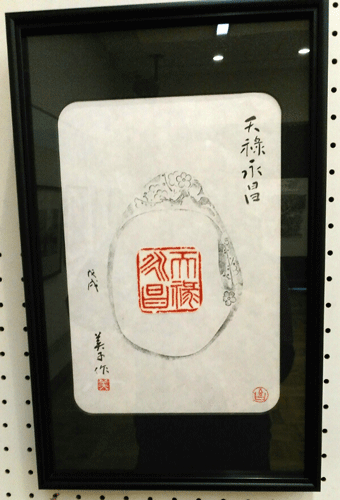 天祿永昌
天祿
永昌
戊戌
美 作